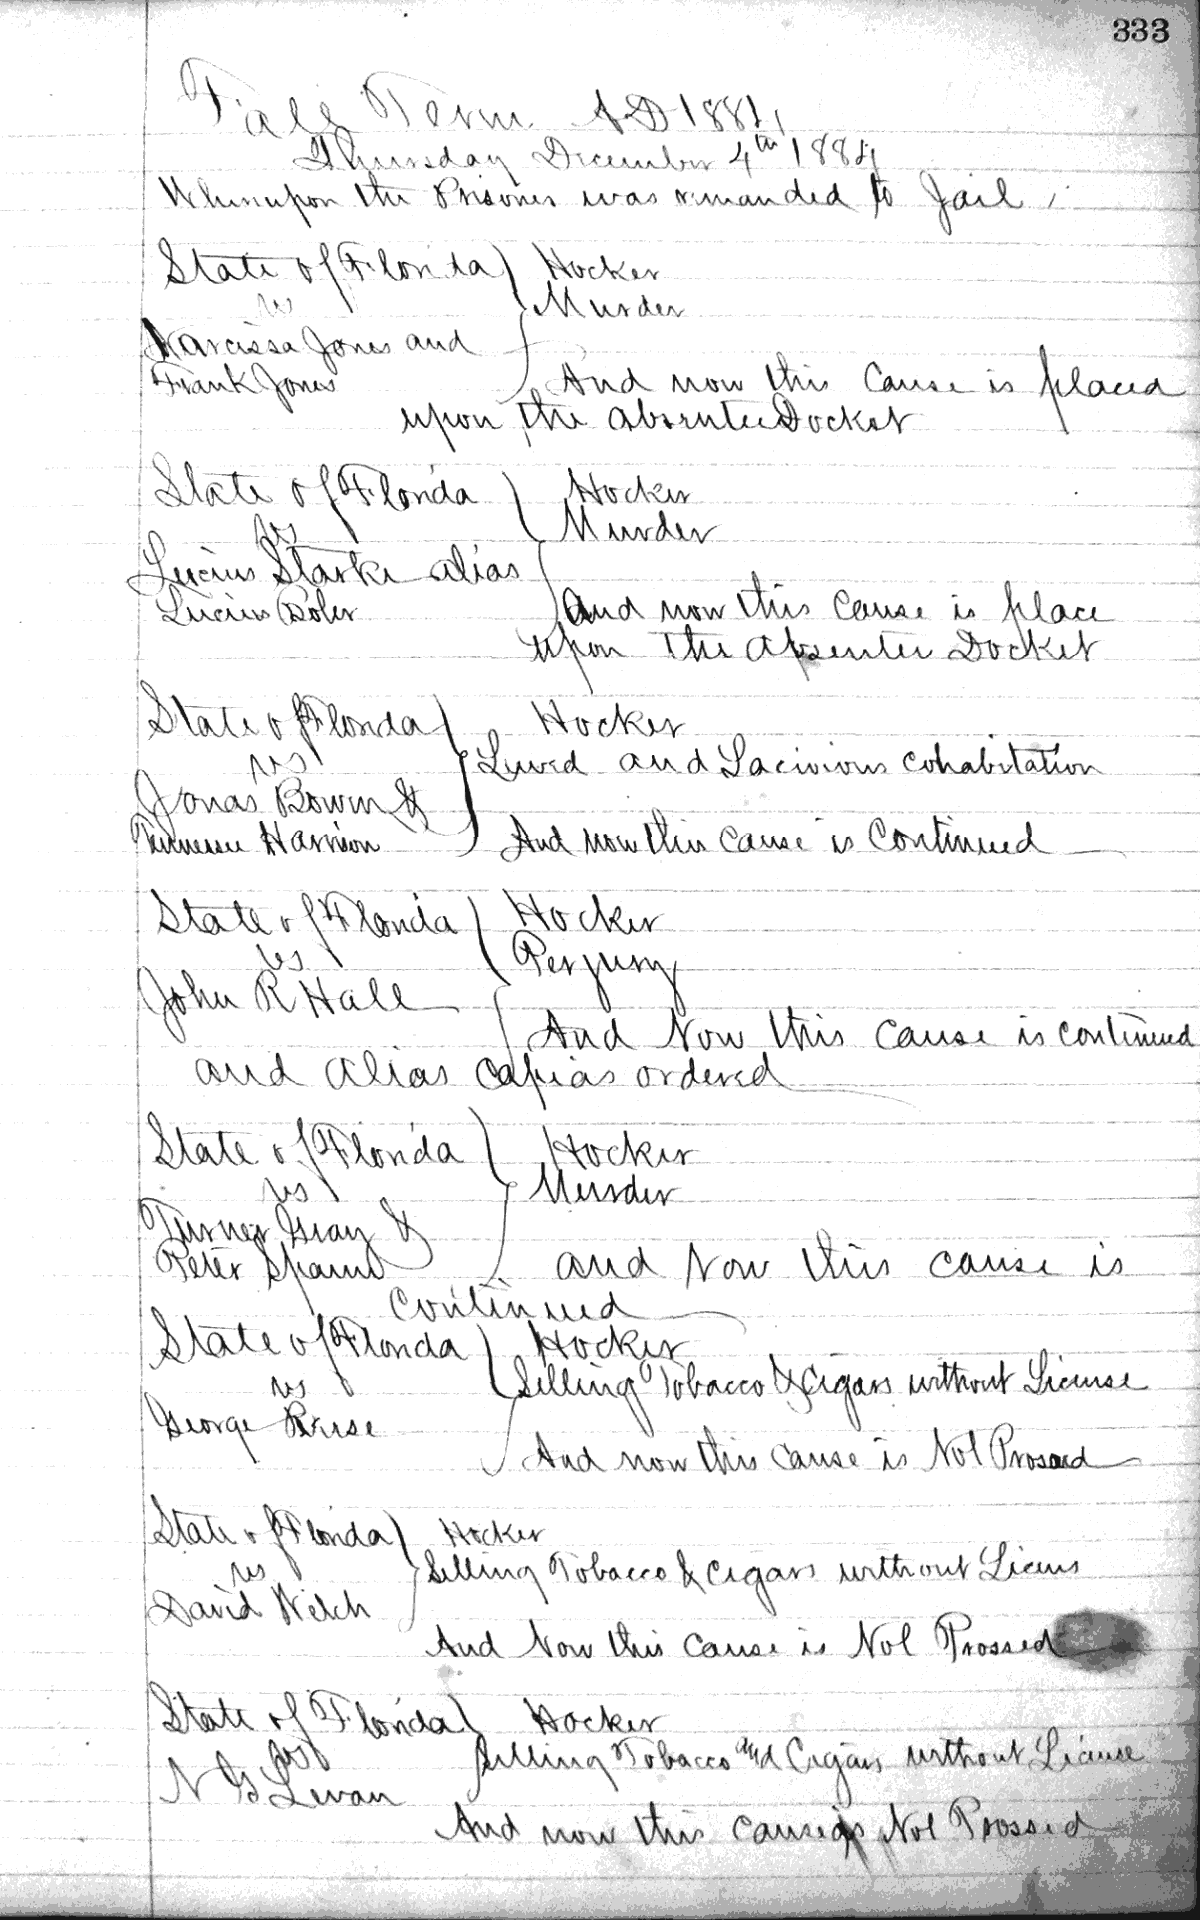 333
Fall Term AD 1884
Thursday December 4th 1884
Whereupon the Prisoner was remanded to Jail
State of Florida Hocker
vs Murder
Narcissa Jones and
Frank Jones And now this cause is placed
upon the absentee Docket
State of Florida Hocker
vs Murder
Lucius Starke alias
Lucius and now this cause is place
upon the absentee Docket
State of Florida Hocker
vs Lewd and Lacivious cohabitation
Jonas Bowen &
Tennessee Harrison And now this cause is continued
State of Florida Hocker
vs Perjury
John R Hall
And Now this cause is continued
and alias capias ordered
State of Florida Hocker
vs Murder
Turner Gray &
Peter and Now this cause is
continued
State of Florida Hocker
vs Selling Tobacco & Cigars without License
George
And now this cause is Nol Prossed
State of Florida Hocker
vs Selling Tobacco & Cigars without Licens
David Welch
And Now this cause is Nol Prossed
State of Florida Hocker
vs Selling Tobacco and Cigars without License
N B Levan
And now this cause is Nol Prossed